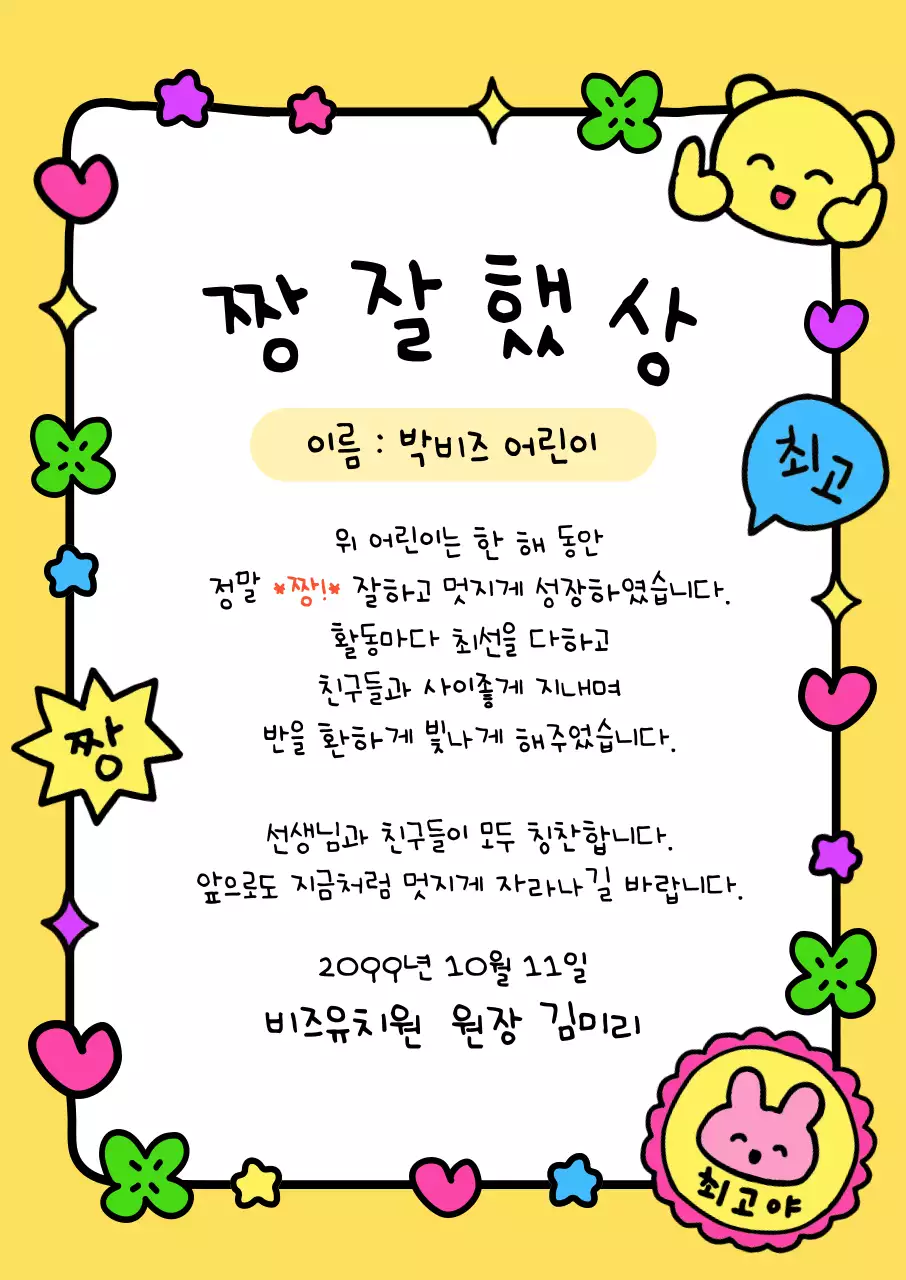 짱 잘 했 상
이름 : 박비즈 어린이
최고
위 어린이는 한 해 동안
정말 *짱!* 잘하고 멋지게 성장하였습니다.
활동마다 최선을 다하고
친구들과 사이좋게 지내며
반을 환하게 빛나게 해주었습니다.
짱
선생님과 친구들이 모두 칭찬합니다.
앞으로도 지금처럼 멋지게 자라나길 바랍니다.
2099년 10월 11일
비즈유치원 원장 김미리
최고야